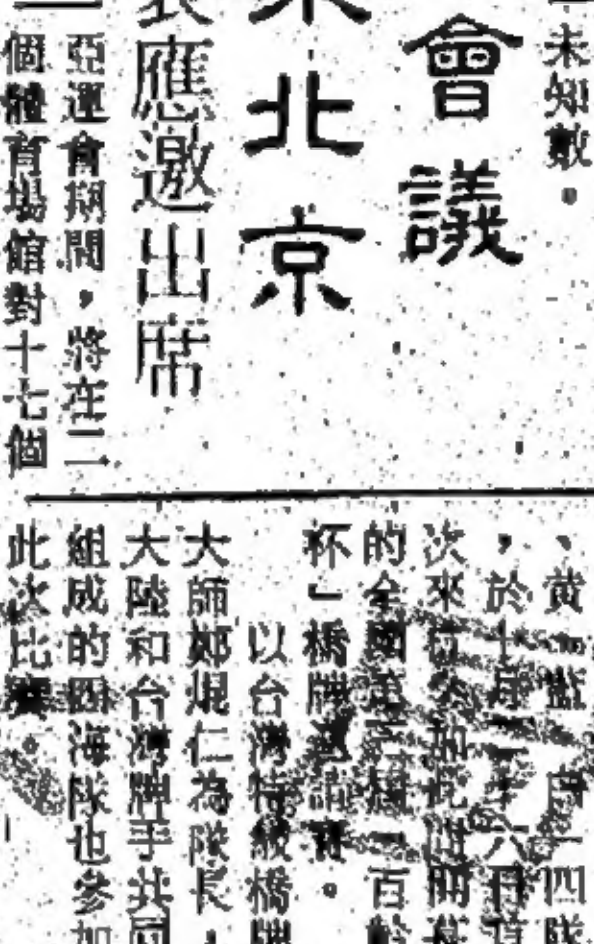 未知數。
會議
北京
應邀出席
亞運會期間，將在二
個體育場館對十七個
、黃、藍、白、四隊
，於十月二十六日首
次來
的全國第 一百齡
杯」橋牌邀請賽。
以台灣特級橋牌
大師鄭焜仁為隊長，
大陸和台灣牌手共同
組成的四海隊也參加
此次比賽。